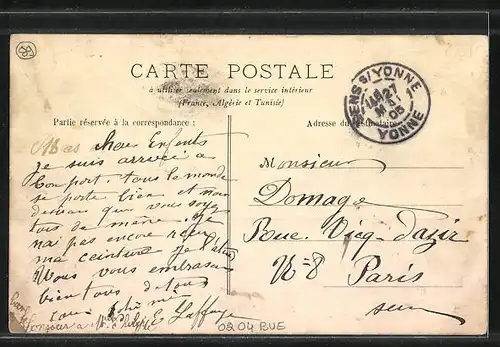 CARTE POSTALE
à utiliser seulement dans le service intérieur
(France, Algérie et Tunisie)
Partie réservée à la correspondance :
Adresse du destinataire
SENS S/YONNE
27
05
YONNE
Mes chers Enfants
je suis arrivé a
bon port. tous le monde
se porte bien et nous
que vous soyez
tous de meme. Je
nai pas encore reçu
ma ceinture
Vous vous embrasse
bien tous de tous
E Laffaye
bonjour a
Monsieur
Domage
Roue Vicq-d'azir
N=8 Paris
0204 RUE